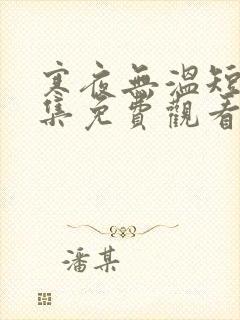 寒夜無溫短
集免費觀看
潘某